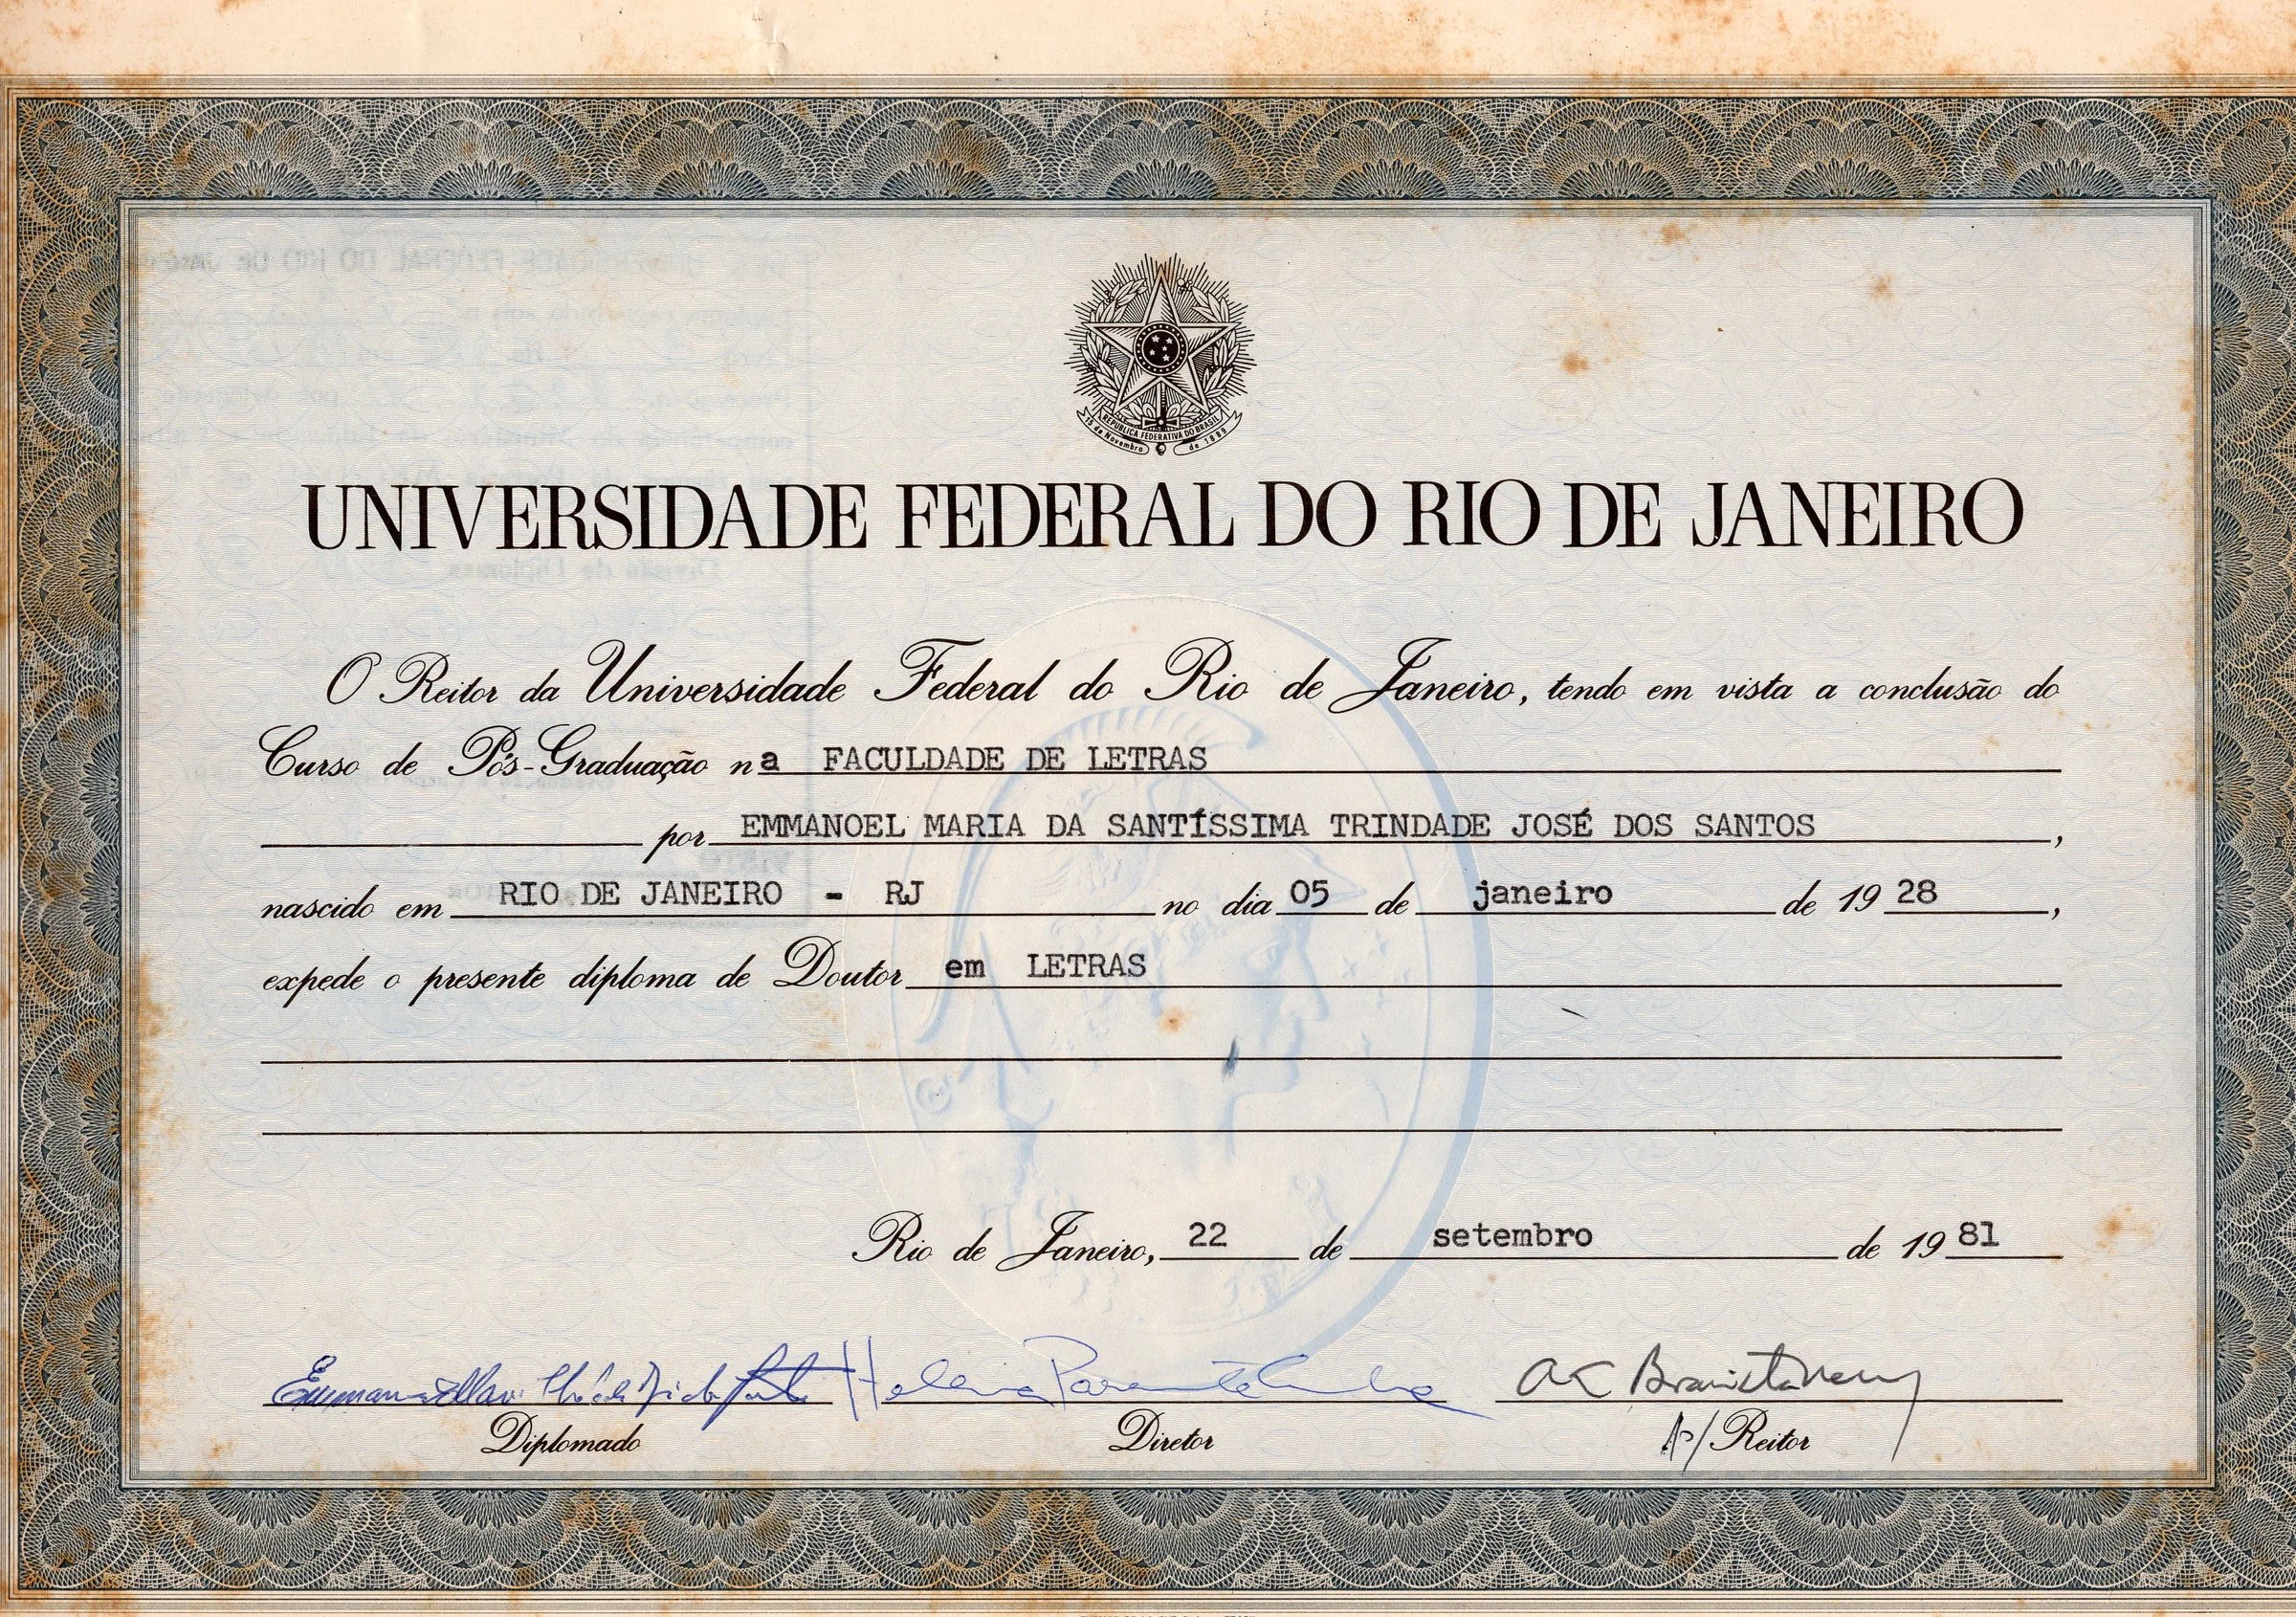 REPÚBLICA FEDERATIVA DO BRASIL
15 de Novembro de 1889
UNIVERSIDADE FEDERAL DO RIO DE JANEIRO
O Reitor da Universidade Federal do Rio de Janeiro, tendo em vista a conclusão do
Curso de Pós-Graduação na FACULDADE DE LETRAS
por EMMANOEL MARIA DA SANTÍSSIMA TRINDADE JOSÉ DOS SANTOS,
nascido em RIO DE JANEIRO - RJ no dia 05 de janeiro de 1928,
expede o presente diploma de Doutor em LETRAS
Rio de Janeiro, 22 de setembro de 1981
Helena Parente Cunha
Diplomado Diretor P/ Reitor